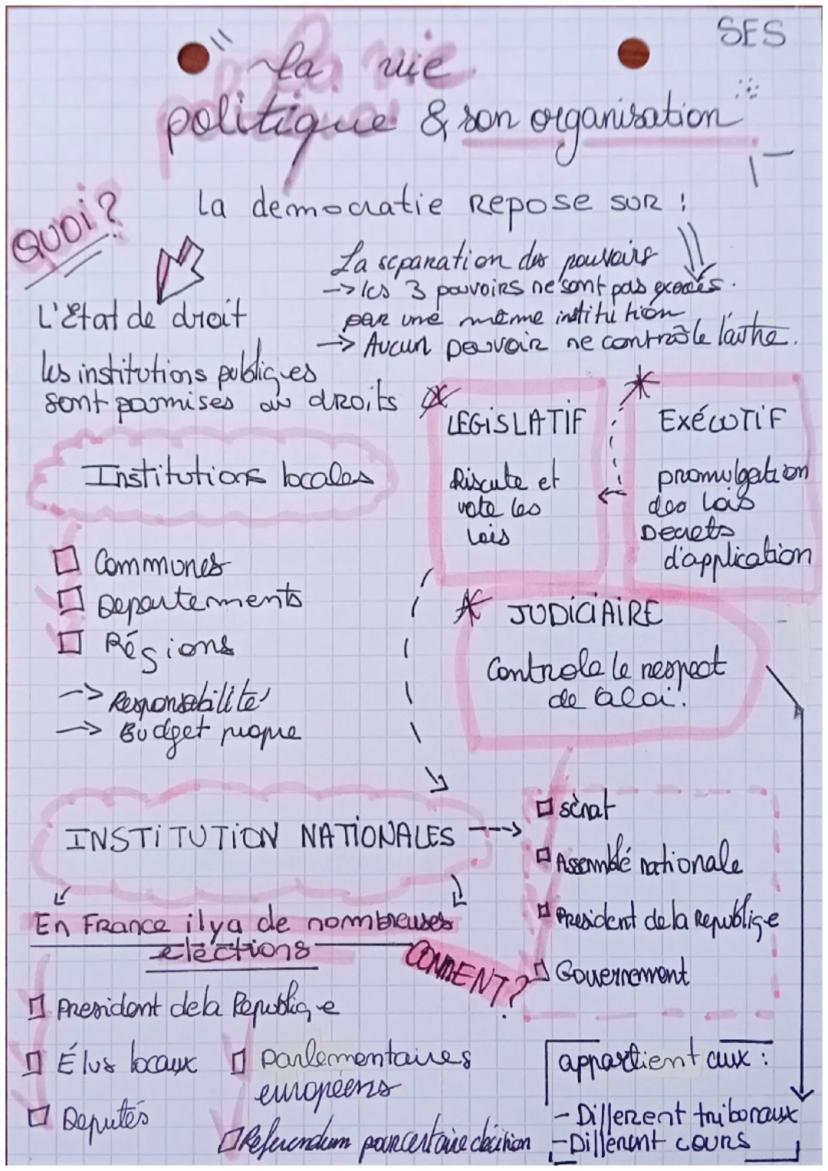 SES
la vie
politique & son organisation
QUOI?
La democratie repose sur :
L'Etat de droit
les institutions publiques
sont soumises au droits
La séparation des pouvoirs
-> les 3 pouvoirs ne sont pas exercés.
par une même institution
-> Aucun pouvoir ne contrôle l'autre.
LEGISLATIF
Discute et
vote les
lois
EXÉCUTIF
promulgation
des lois
Decrets
d'application
Institutions locales
Communes
Departements
Régions
-> Responsabilité
-> Budget propre
JUDICIAIRE
Controle le respect
de la loi.
INSTITUTION NATIONALES -->
sénat
Assemblé nationale
President de la Republiqe
Gouvernement
En France il y a de nombreuses
elections
COMMENT?
President de la Republiqe
Élus locaux
Deputés
parlementaires
européens
Referendum pour certaine décision
appartient aux :
- Different tribunaux
- Différent cours